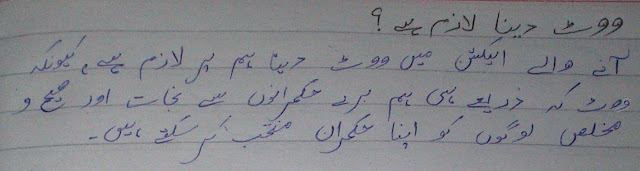 ووٹ دینا لازم ہے ؟
آنے والے الیکشن میں ووٹ دینا ہم پر لازم ہے، کیونکہ
ووٹ کہ ذریعے ہی ہم برے حکمرانوں سے نجات اور صحیح و
مخلص لوگوں کو اپنا حکمران منتخب کر سکتے ہیں۔